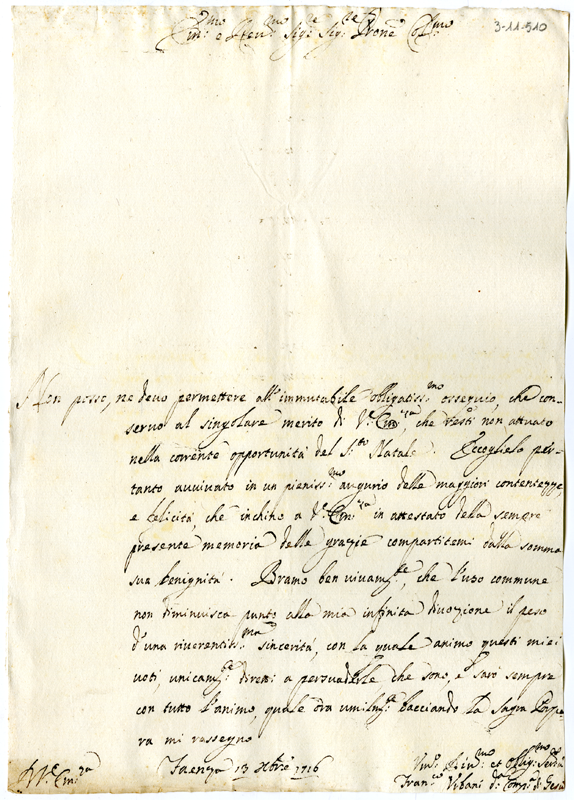 3-11-510
Em:mo e Rev:mo Sig:re Sig:re e Prone Col:mo
Non posso, ne devo permettere all' immutabile obligatiss:mo ossequio, che con-
servo al singolare merito di V:ra Em:za, che resti non attuato
nella corrente opportunità del S:to Natale. Accoglielo per-
tanto avvivato in un pieniss:mo augurio delle maggiori contentezze,
e felicità che inchino a V:ra Em:za in attestato della sempre
presente memoria delle grazie compartitemi dalla somma
sua benignità. Bramo ben vivam:te, che l'uso commune
non diminuisca punto alla mia infinita divozione il peso
d'una riverentiss:ma sincerità, con la quale animo questi miei
voti, unicam:te diretti a persuaderle che sono, e sarò sempre
con tutto l'animo, quale ora umilm:te bacciando la Sagra Porpo-
ra mi rassegno
Di V:ra Em:za
Faenza 13 Xbre 1716
Um:o Div:mo et Oblig:mo Ser:re
Fran:co Vibani d:a Comp:a di Gesù